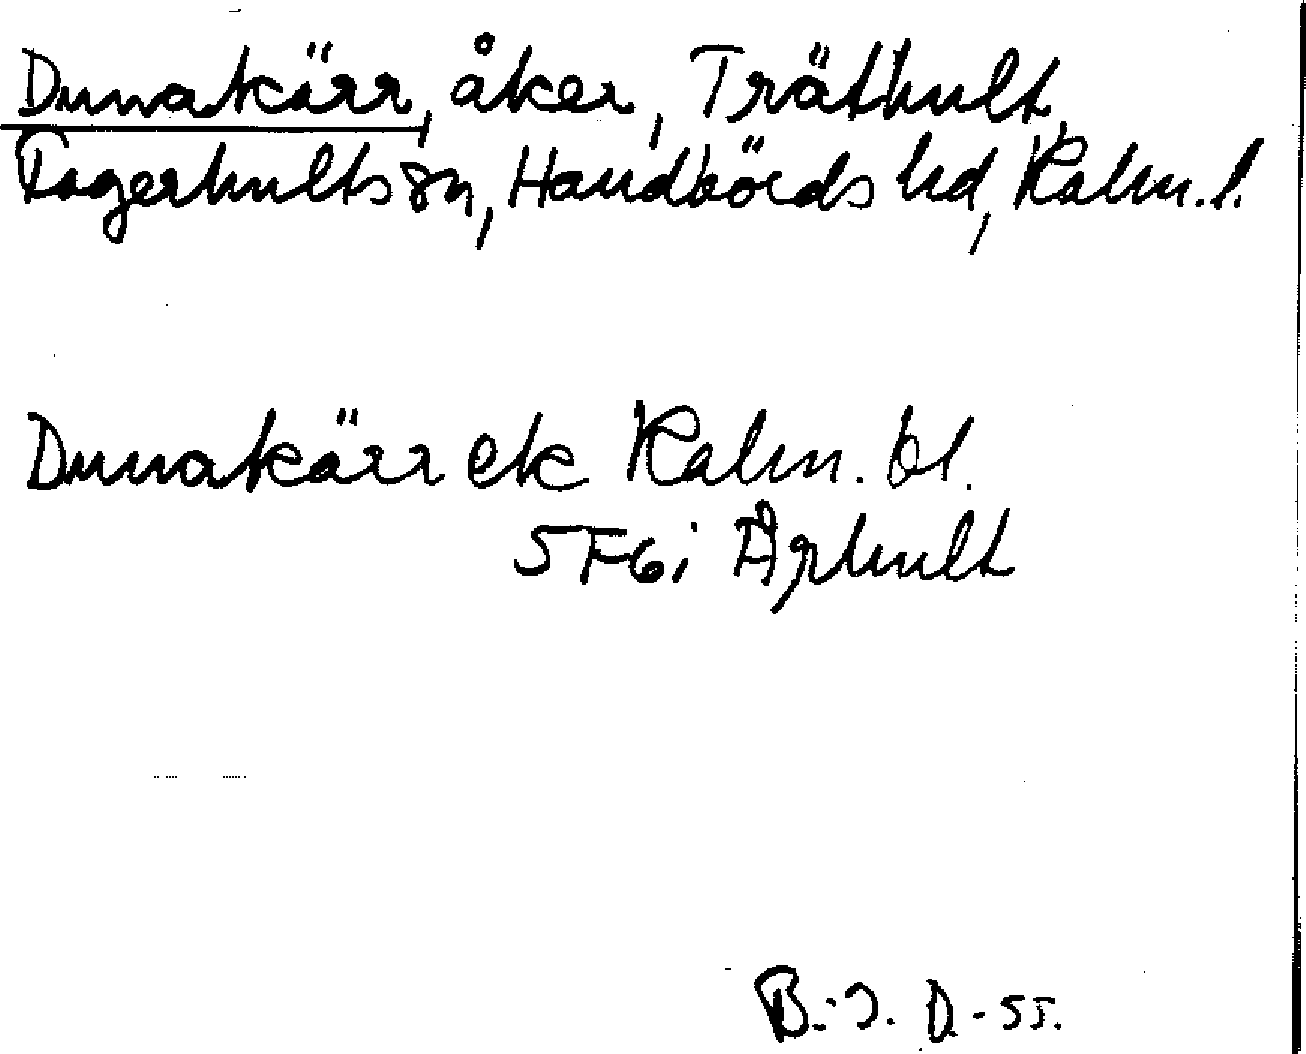 Dunakärr, åker, Träthult,
Fagerhults sn, Handbörds hd, Kalm. l.
Dunakärr ek Kalm. bl.
5F6i Älghult
B.-J. D.-55.